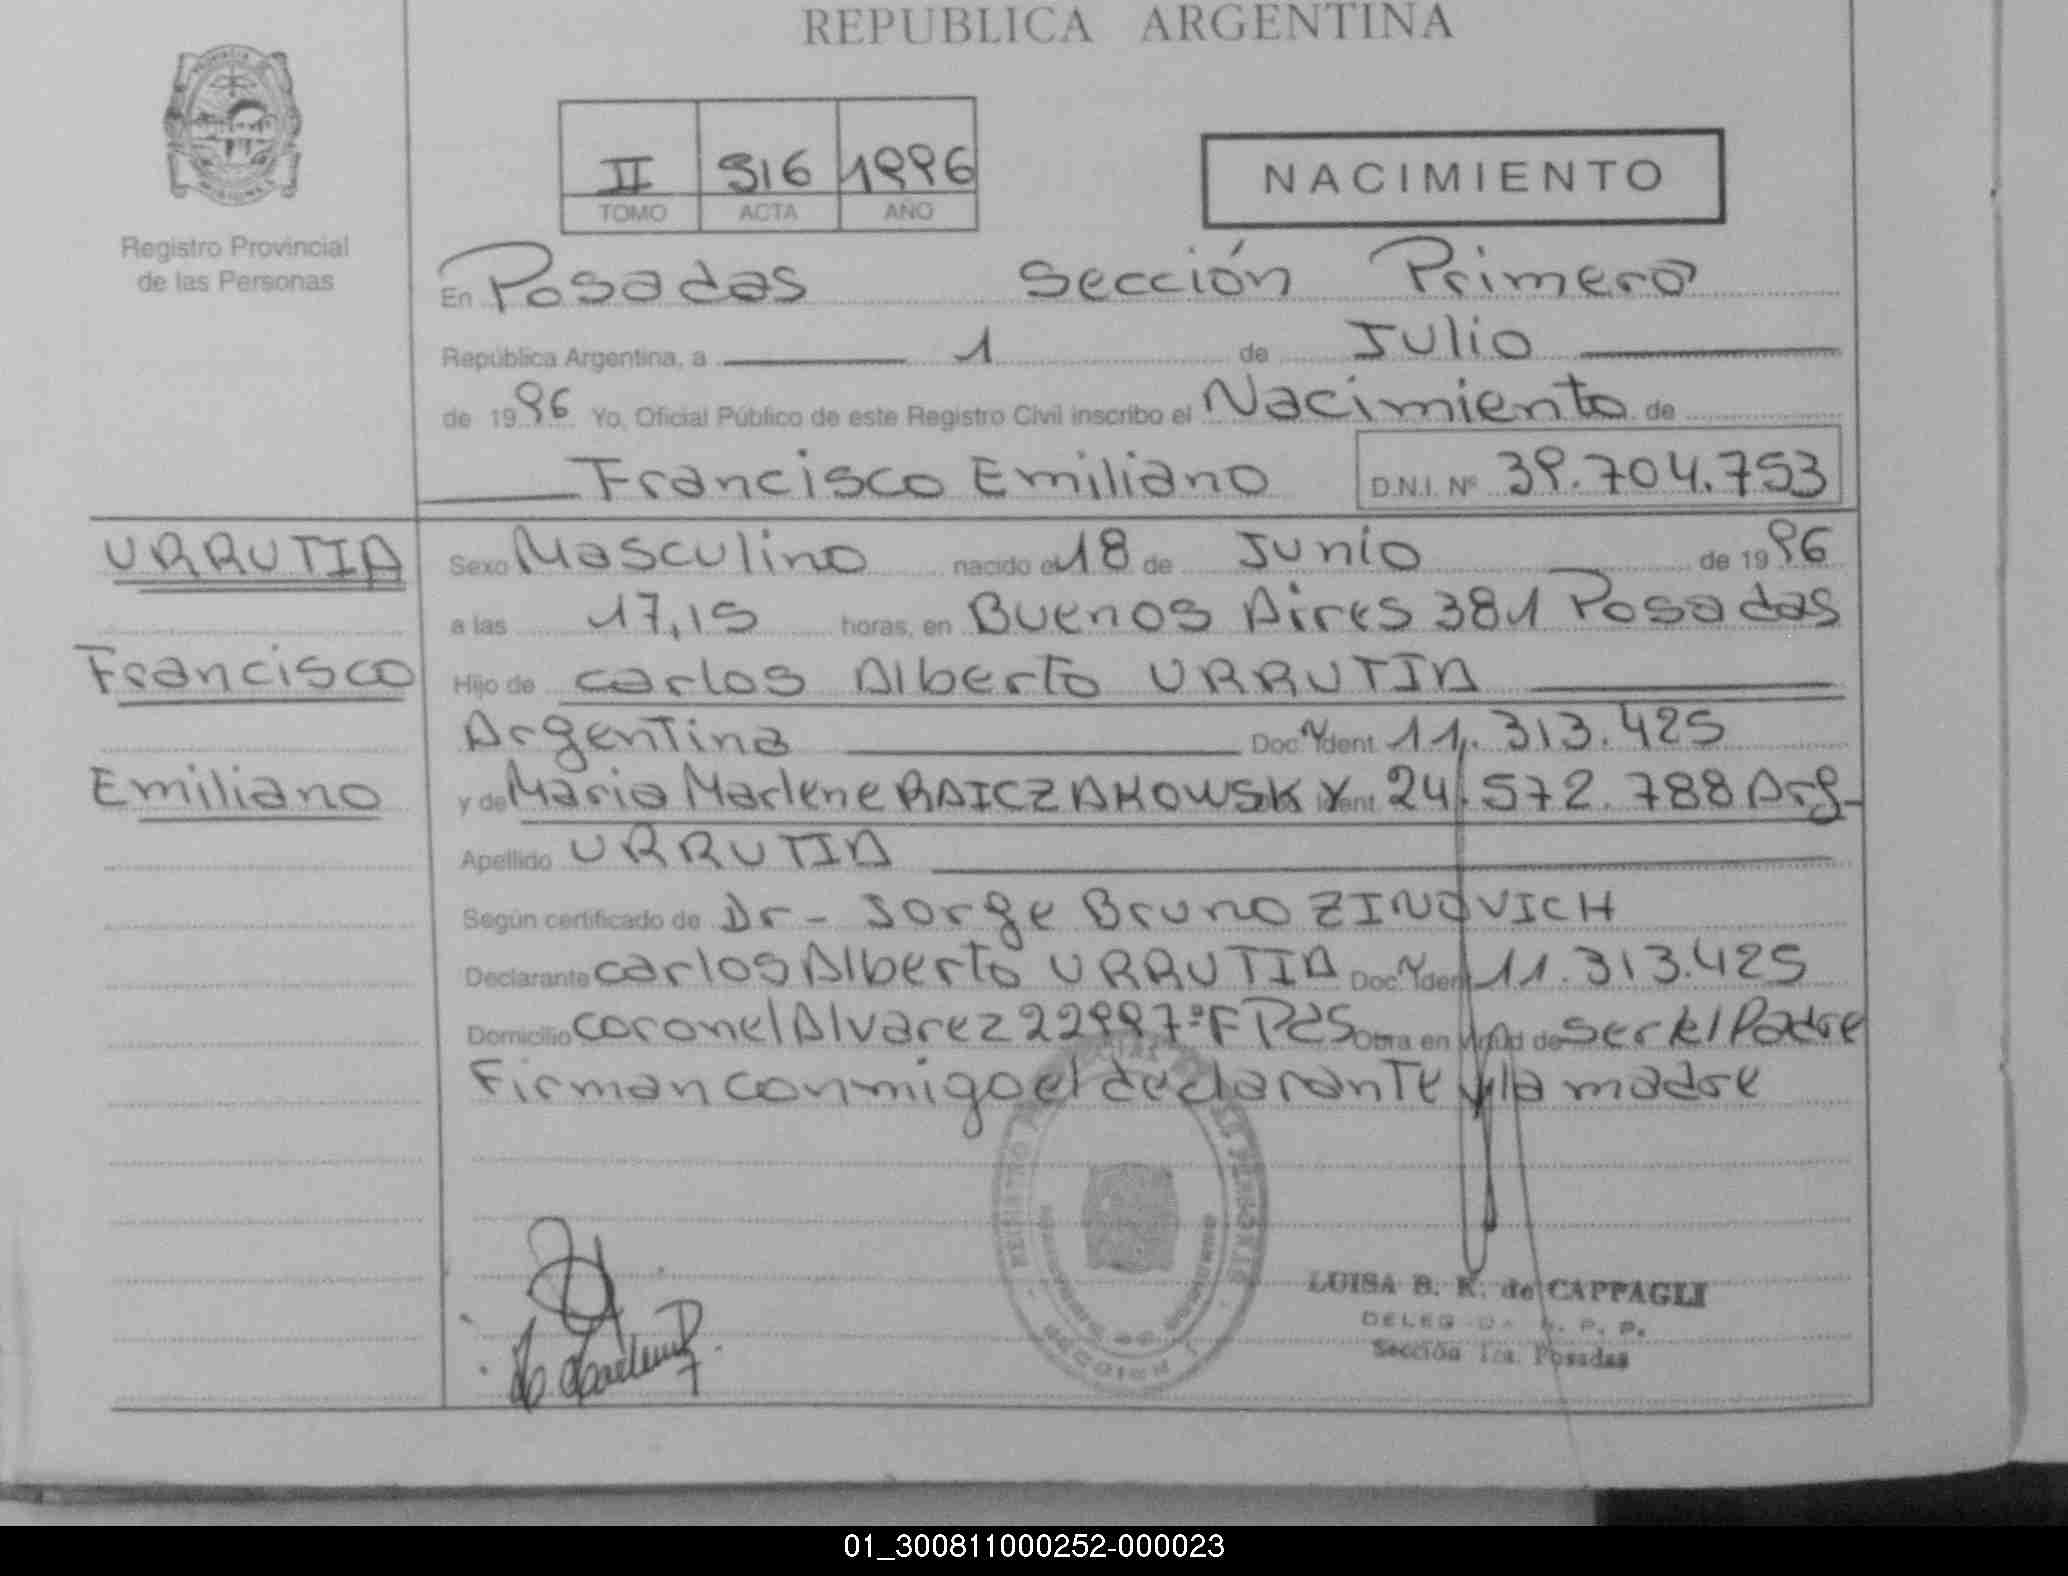 REPUBLICA ARGENTINA
Registro Provincial
de las Personas
II 516 1996
TOMO ACTA AÑO
NACIMIENTO
En Posadas Sección Primera
República Argentina, a 1 de Julio
de 1996 Yo, Oficial Público de este Registro Civil inscribo el Nacimiento de
Francisco Emiliano D.N.I. Nº 39.704.753
URRUTIA
Francisco
Emiliano
Sexo Masculino nacido el 18 de Junio de 1996
a las 17,15 horas, en Buenos Aires 381 Posadas
Hijo de Carlos Alberto URRUTIA
Argentina Doc. Ident. 11.313.425
y de Maria Marlene RAICZAKOWSKY Ident. 24.572.788 Arg-
Apellido URRUTIA
Según certificado de Dr- Jorge Bruno ZINOVICH
Declarante Carlos Alberto URRUTIA Doc. Ident. 11.313.425
Domicilio Coronel Alvarez Pds Obra en virtud de Ser el Padre
Firman conmigo el declarante y la madre
LUISA B. K. de CAPPAGLI
Sección 1ra. Posadas
01_300811000252-000023